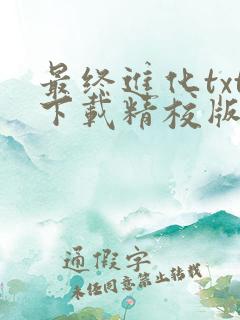 最终进化txt
下载精校版
通假字
未经同意禁止转载